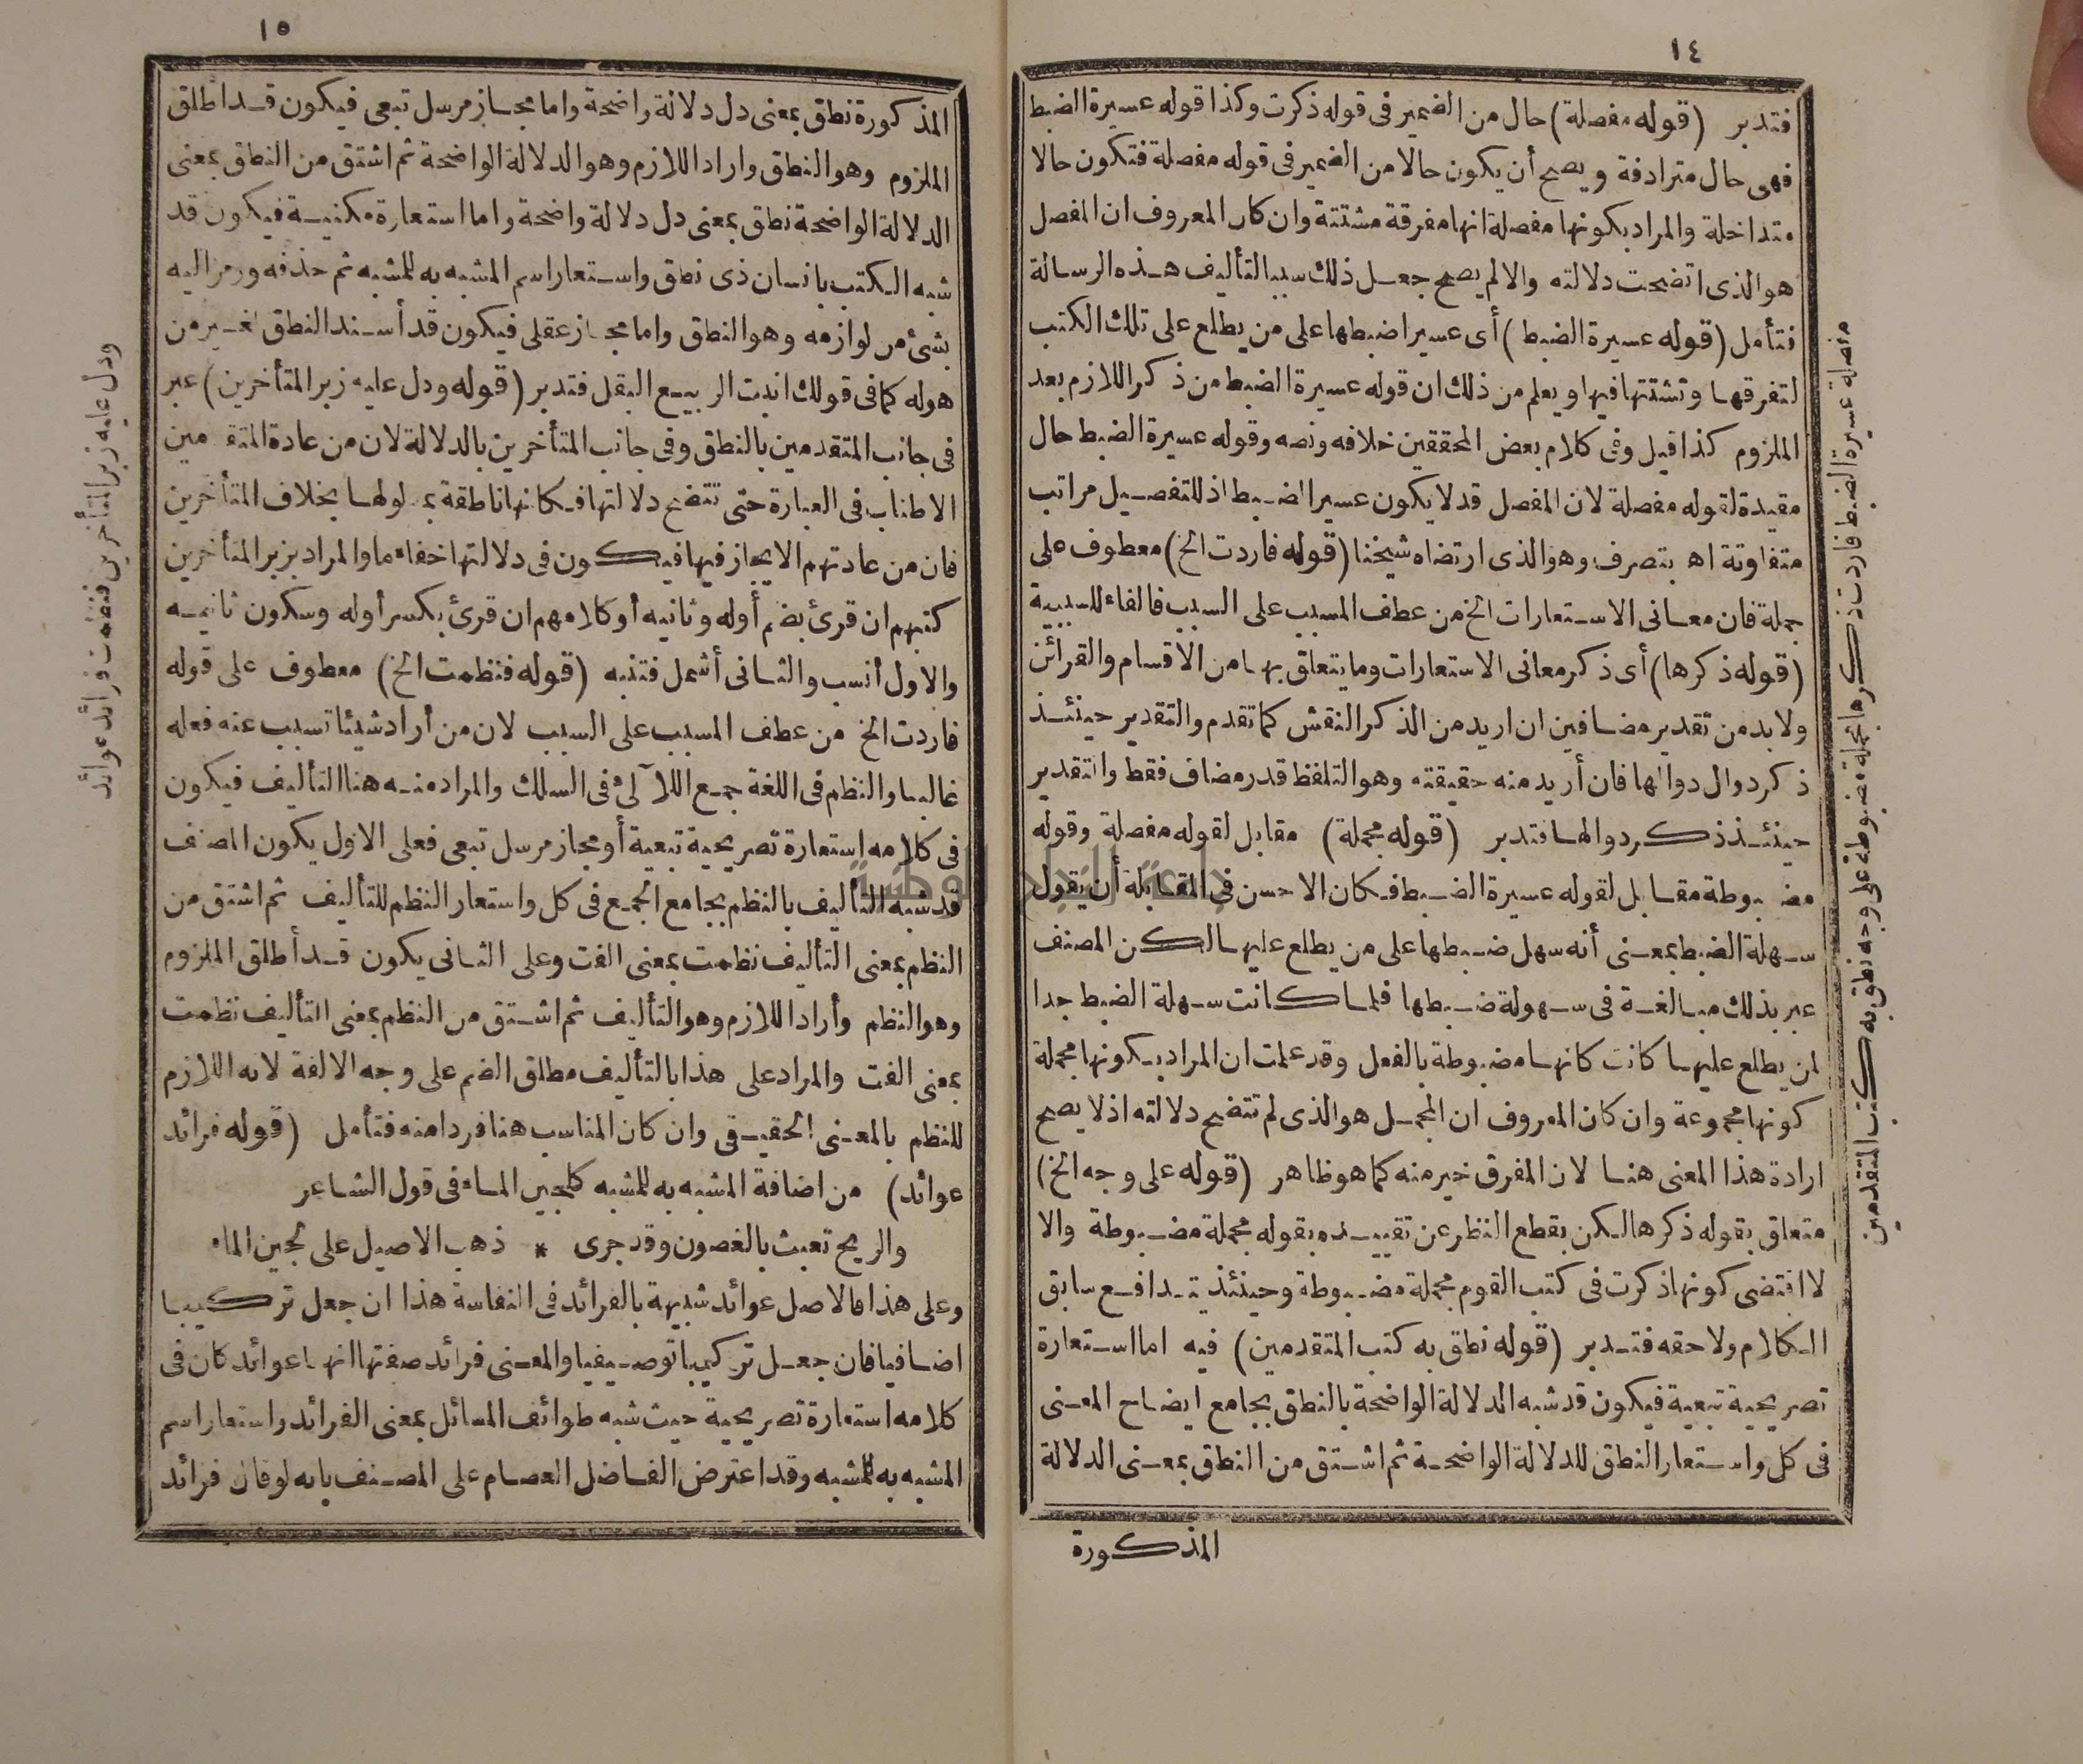 ١٤
فتدبر (قوله مفصلة) حال من الضمير فى قوله ذكرت وكذا قوله عسيرة الضبط
فهى حال مترادفة ويصح أن يكون حالا من الضمير فى قوله مفصلة فتكون حالا
متداخلة والمراد بكونها مفصلة انها مفرقة مشتتة وان كان المعروف ان المفصل
هو الذى اتضحت دلالته والا لم يصح جعل ذلك سببا لتأليف هذه الرسالة
فتأمل (قوله عسيرة الضبط) أى عسيرا ضبطها على من يطلع على تلك الكتب
لتفرقها وتشتتها فيها ويعلم من ذلك ان قوله عسيرة الضبط من ذكر اللازم بعد
الملزوم كذا قيل وفى كلام بعض المحققين خلافه ونصه وقوله عسيرة الضبط حال
مقيدة لقوله مفصلة لان المفصل قد لا يكون عسير الضبط اذ للتفصيل مراتب
متفاوتة اه بتصرف وهو الذى ارتضاه شيخنا (قوله فاردت الخ) معطوف على
جملة فان معانى الاستعارات الخ من عطف المسبب على السبب فالفاء للسببية
(قوله ذكرها) أى ذكر معانى الاستعارات وما يتعلق بها من الاقسام والقرائن
ولا بد من تقدير مضافين ان اريد من الذكر النقش كما تقدم والتقدير حينئذ
ذكر دوال دوالها فان أريد منه حقيقته وهو التلفظ قدر مضاف فقط والتقدير
حينئذ ذكر دوالها فتدبر (قوله مجملة) مقابل لقوله مفصلة وقوله
مضبوطة مقابل لقوله عسيرة الضبط فكان الاحسن فى المقابلة أن يقول
سهلة الضبط بمعنى أنه سهل ضبطها على من يطلع عليها لكن المصنف
عبر بذلك مبالغة فى سهولة ضبطها فلما كانت سهلة الضبط جدا
لمن يطلع عليها كانت كانها مضبوطة بالفعل وقد علمت ان المراد بكونها مجملة
كونها مجموعة وان كان المعروف ان المجمل هو الذى لم تتضح دلالته اذ لا يصح
ارادة هذا المعنى هنا لان المفرق خير منه كما هو ظاهر (قوله على وجه الخ)
متعلق بقوله ذكرها لكن بقطع النظر عن تقييده بقوله مجملة مضبوطة والا
لا اقتضى كونها ذكرت فى كتب القوم مجملة مضبوطة وحينئذ يتدافع سابق
الكلام ولاحقه فتدبر (قوله نطق به كتب المتقدمين) فيه اما استعارة
تصريحية تبعية فيكون قد شبه الدلالة الواضحة بالنطق بجامع ايضاح المعنى
فى كل واستعار النطق للدلالة الواضحة ثم اشتق من النطق بمعنى الدلالة
المذكورة
مفصلة عسيرة الضبط فاردت ذكرها مجملة مضبوطة على وجه نطق به كتب المتقدمين
١٥
المذكورة نطق بمعنى دل دلالة واضحة واما مجاز مرسل تبعى فيكون قد أطلق
الملزوم وهو النطق واراد اللازم وهو الدلالة الواضحة ثم اشتق من النطق بمعنى
الدلالة الواضحة نطق بمعنى دل دلالة واضحة واما استعارة مكنية فيكون قد
شبه الكتب بانسان ذى نطق واستعار اسم المشبه به للمشبه ثم حذفه ورمز اليه
بشئ من لوازمه وهو النطق واما مجاز عقلى فيكون قد أسند النطق لغير من
هوله كما فى قولك انبت الربيع البقل فتدبر (قوله ودل عليه زبر المتأخرين) عبر
فى جانب المتقدمين بالنطق وفى جانب المتأخرين بالدلالة لان من عادة المتقدمين
الاطناب فى العبارة حتى تتضح دلالتها فكانها ناطقة بمدلولها بخلاف المتأخرين
فان من عادتهم الايجاز فيها فيكون فى دلالتها خفاء ما والمراد بزبر المتأخرين
كتبهم ان قرئ بضم أوله وثانيه أو كلامهم ان قرئ بكسر أوله وسكون ثانيه
والاول أنسب والثانى أشمل فتنبه (قوله فنظمت الخ) معطوف على قوله
فاردت الخ من عطف المسبب على السبب لان من أراد شيئا تسبب عنه فعله
غالبا والنظم فى اللغة جمع اللآلئ فى السلك والمراد منه هنا التأليف فيكون
فى كلامه استعارة تصريحية تبعية أو مجاز مرسل تبعى فعلى الاول يكون المصنف
قد شبه التأليف بالنظم بجامع الجمع فى كل واستعار النظم للتأليف ثم اشتق من
النظم بمعنى التأليف نظمت بمعنى الفت وعلى الثانى يكون قد أطلق الملزوم
وهو النظم وأراد اللازم وهو التأليف ثم اشتق من النظم بمعنى التأليف نظمت
بمعنى الفت والمراد على هذا بالتأليف مطلق الضم على وجه الالفة لانه اللازم
للنظم بالمعنى الحقيقى وان كان المناسب هنا فردا منه فتأمل (قوله فرائد
عوائد) من اضافة المشبه به للمشبه كلجين الماء فى قول الشاعر
والريح تعبث بالغصون وقد جرى * ذهب الاصيل على لجين الماء
وعلى هذا فالاصل عوائد شبيهة بالفرائد فى النفاسة هذا ان جعل تركيبا
اضافيا فان جعل تركيبا توصيفيا والمعنى فرائد صفتها انها عوائد كان فى
كلامه استعارة تصريحية حيث شبه طوائف المسائل بمعنى الفرائد واستعار اسم
المشبه به للمشبه وقد اعترض الفاضل العصام على المصنف بانه لو قال فرائد
ودل عليه زبر المتأخرين فنظمت فرائد عوائد